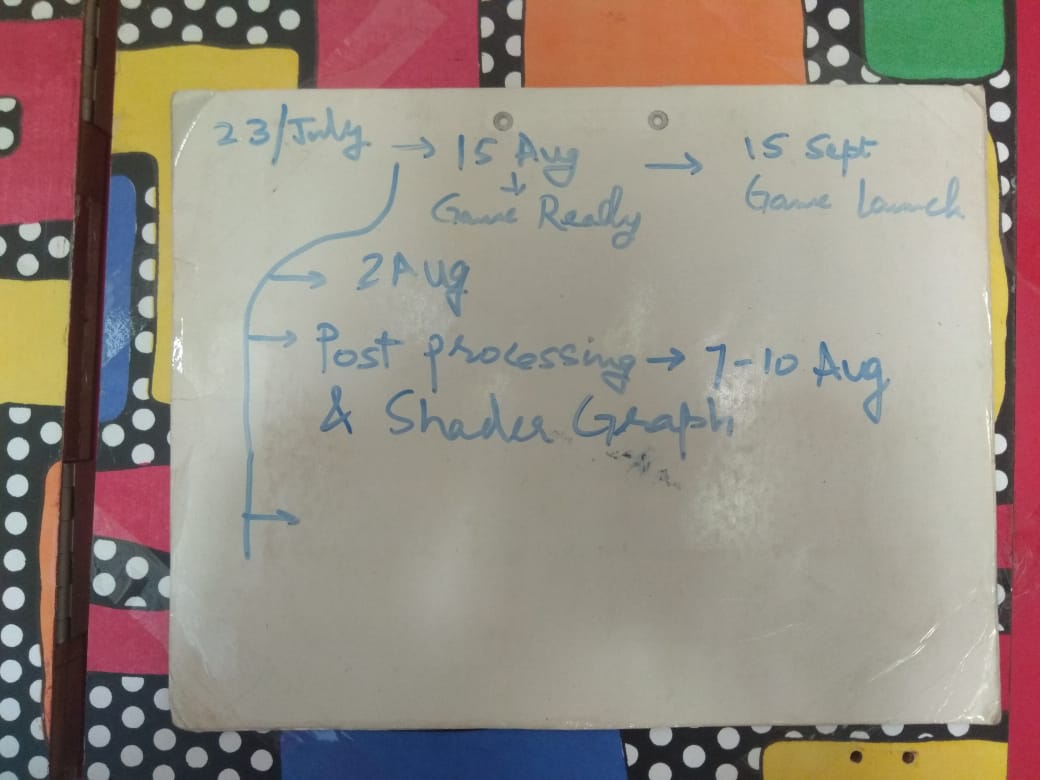 23/July → 15 Aug → 15 Sept
↓
Game Ready Game Launch
→ 2 Aug
→ Post processing → 7-10 Aug
& Shader Graph
→